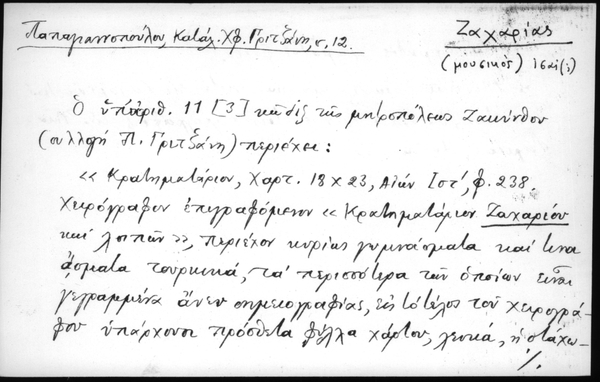 Παπαγιαννοπούλου, Κατάλ. Χφ. Γριτζάνη, σ. 12.
Ζαχαρίας
(μουσικός) ις αἰ(;)
Ὁ ὑπ' ἀριθ. 11 [3] κῶδιξ τῆς μητροπόλεως Ζακύνθου
(συλλογή Π. Γριτζάνη) περιέχει:
«Κρατηματάριον, Χαρτ. 18 x 23, Αἰών Ιςτ', φ. 238.
Χειρόγραφον ἐπιγραφόμενον «Κρατηματάριον Ζαχαρίου
καί λοιπῶν», περιέχον κυρίως γυμνάσματα καί τινα
ᾄσματα τουρκικά, τά περισσότερα τῶν ὁποίων εἶναι
γεγραμμένα ἄνευ σημειογραφίας, εἰς τό τέλος τοῦ χειρογρά-
φου ὑπάρχουσι πρόσθετα φύλλα χάρτου, λευκά, ἡ στάχω-
./.